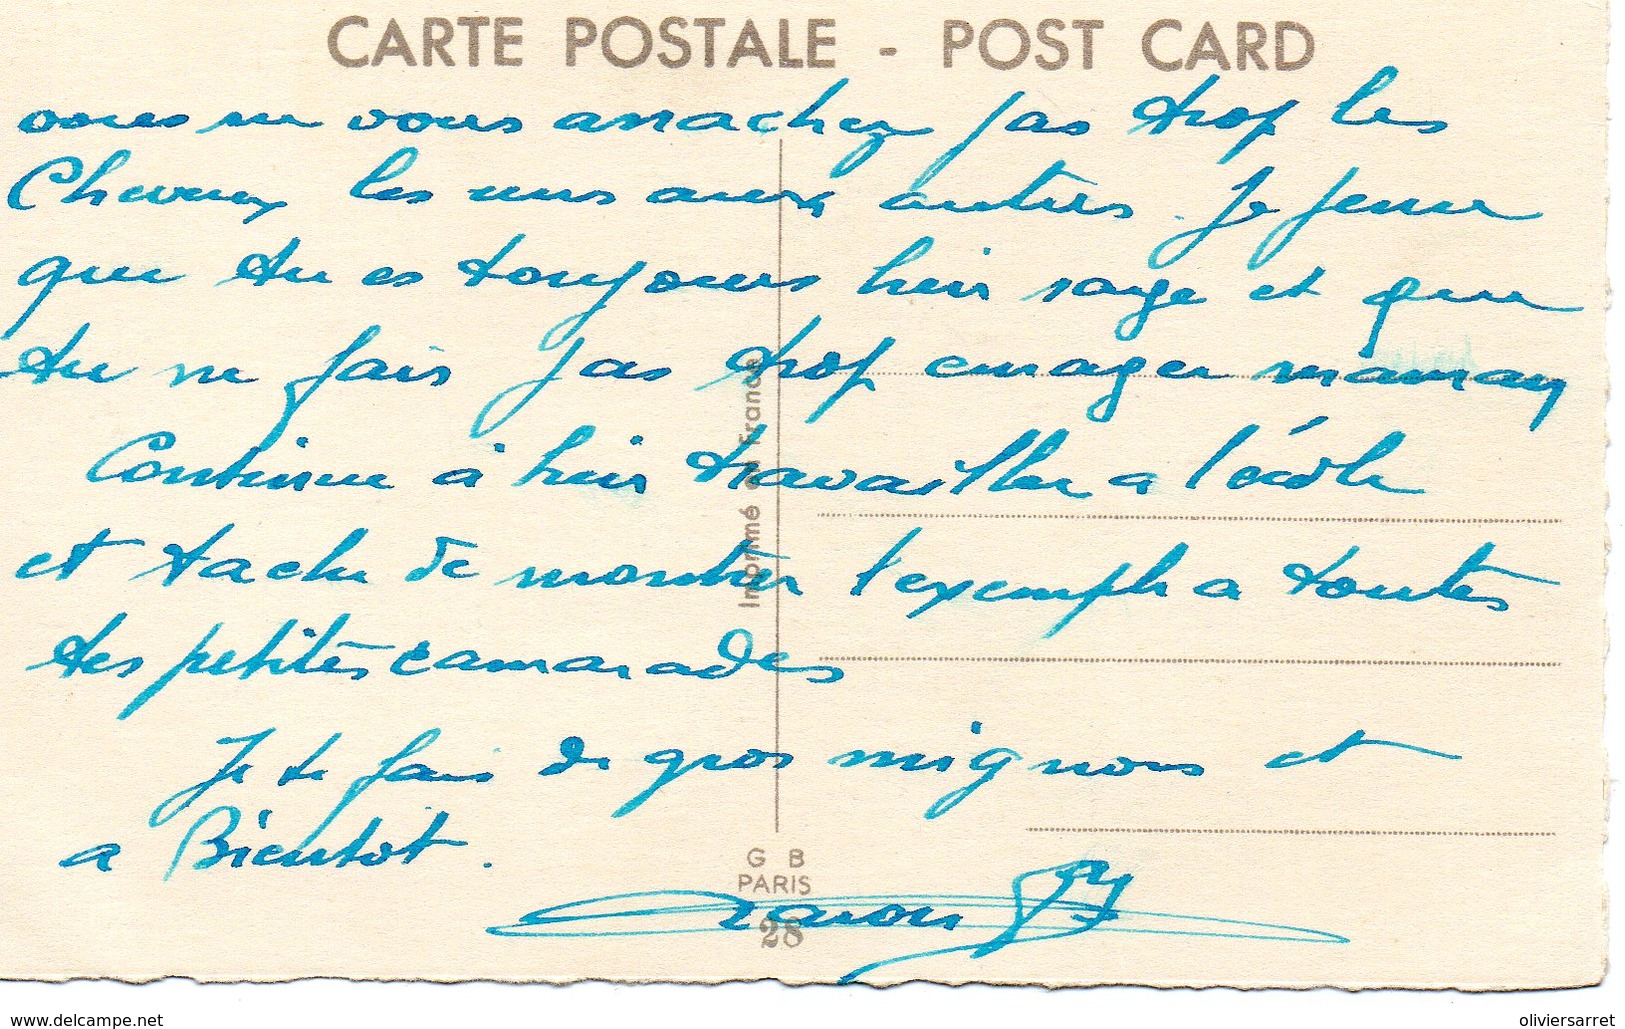 CARTE POSTALE - POST CARD
ne vous arrachez pas trop les
Cheveux les uns aux autres. Je pense
que tu es toujours bien sage et que
tu ne fais pas trop enrager maman
Continue à bien travailler a l'école
et tache de montrer l'exemple a toutes
tes petites camarades
Je te fais de gros mignons et
a Bientot.
Imprimé en France
G B
PARIS
28
www.delcampe.net
oliviersarret